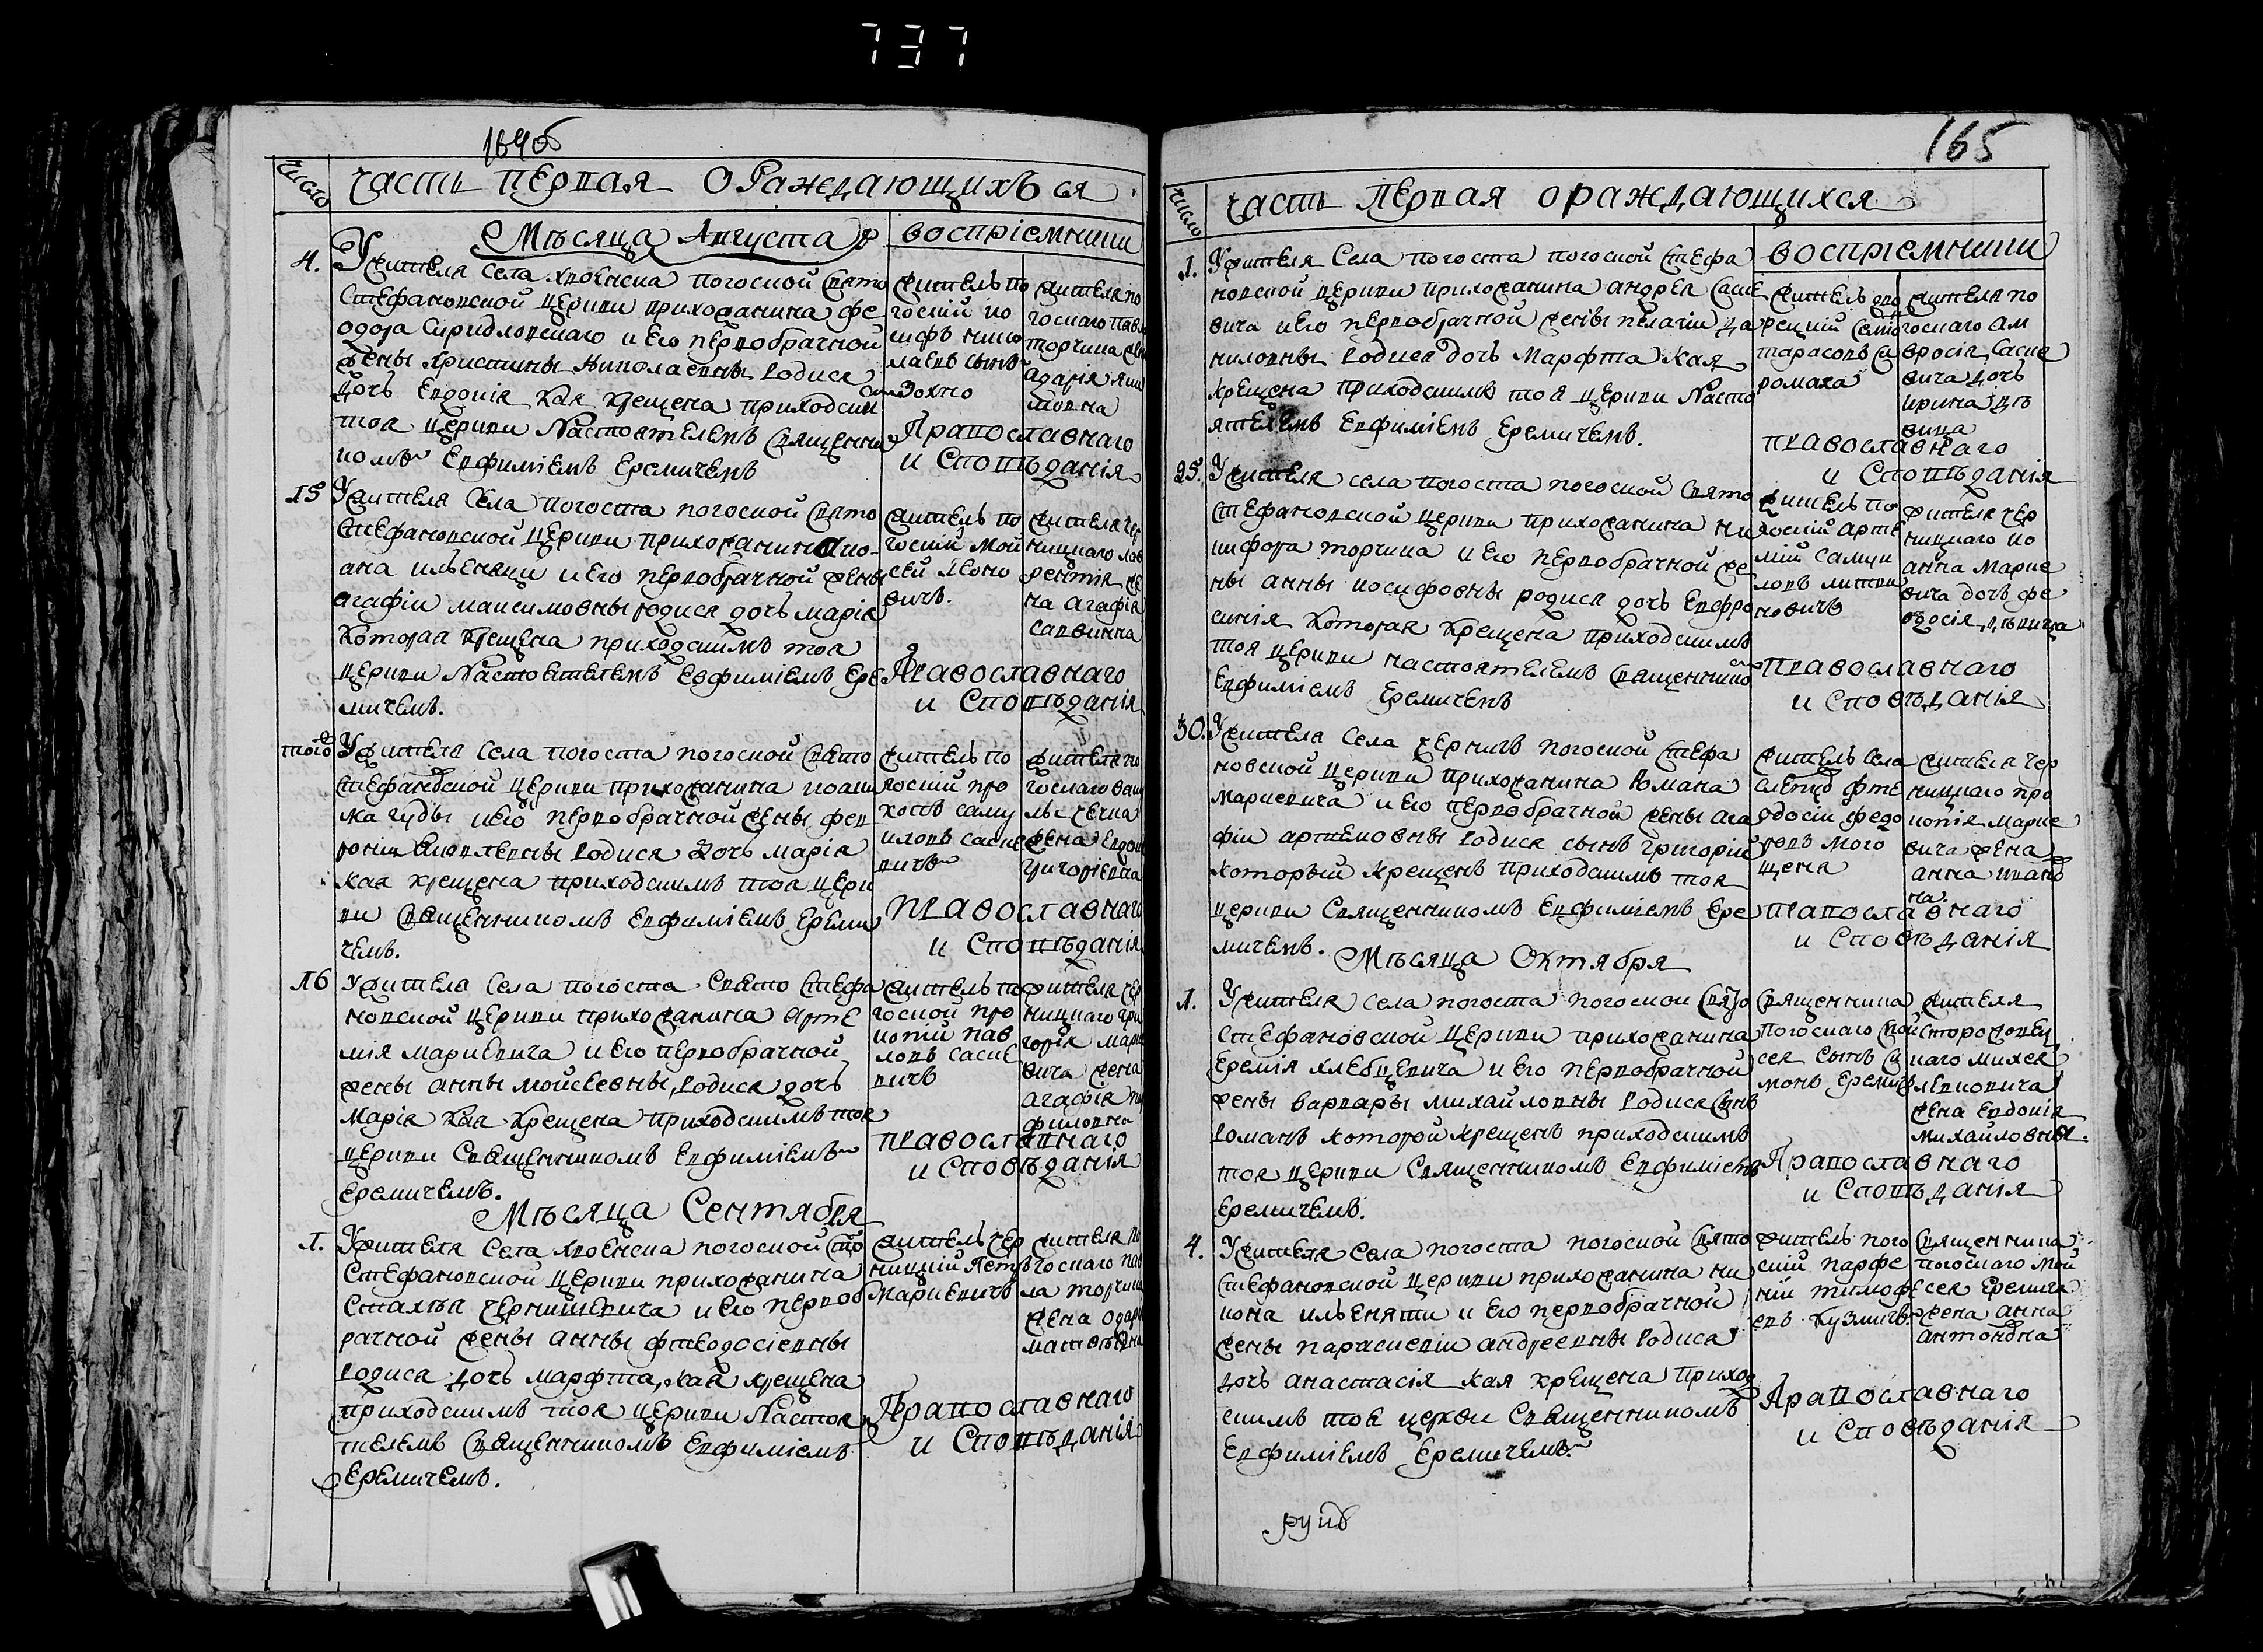 737
164об
Число
Часть Первая О Раждающихъ ся
Мѣсяца Августа
воспріемники
4.
Жителя Села Хвоенска погоской Свято
Стефановской Церкви прихожанина Фе
одора и его первобрачной
жены Христины Николаевны Родися
дочь Евдокія Кая Крещена приходским
тоя Церкви Настоятелемъ Священни
комъ Евфиміемъ Еремичемъ
житель по
госкій іо
сифъ нико
лаевъ сынъ
жителя по
госкаго Павла
торчила жена
Православнаго
и Сповѣданія
15
Жителя Села погоста погоской Свято
Стефановской Церкви прихожанина ио-
ана ильеняци и его первобрачной жены
агафіи максимовны родися дочь марія
Которая Крещена приходскимъ тоя
церкви Настоятелемъ Евфиміемъ Ере
мичемъ.
житель по
госкій Мои
сей Леоно
вичъ.
жителя чер
ницкаго лав
рентія же
на агафія
саввинна
Православнаго
и Сповѣданія
того
Жителя Села погоста погоской Свято
Стефановской Церкви прихожанина иоаки
ма гуды и его первобрачной жены фев
роніи Родися Дочь марія
кая крещена приходскимъ тоя церк
ви Священникомъ Евфиміемъ Ереми
чемъ.
житель по
госкій про
копъ саму
иловъ саске
вичъ
жителя по
госкаго васи
лья
жена Евдокія
григоріевна
Православнаго
и Сповѣданія
16
Жителя Села погоста Свято Стефа
новской Церкви прихожанина Арте
мія Маркевича и его первобрачной
жены анны мойсеевны, Родися дочь
Марія Кая Крещена приходскимъ тоя
церкви Священникомъ Евфиміемъ
Еремичемъ.
житель по
гоской про
копій пав
ловъ саске
вичъ
жителя чер
ницкаго гри
горія марке
вича жена
агафія
филовна
православнаго
и Споведанія
Мѣсяца Сентября
1.
Жителя Села Хвоенска погоской Свто
Стефановской Церкви прихожанина
Стахѣя чернишевича и его первоб
рачной жены анны фтеодосіевны
Родися дочь марфта, Кая крещена
приходскимъ тоя церкви Настоя
телемъ Священникомъ Евфиміемъ
Еремичемъ.
житель чер
ницкій Петръ
Маркевичъ
жителя по
госкаго пав
ла торчила
жена одарія
матвѣевна
Православнаго
и Споведанія
165
Число
Часть Первая о раждающихся
воспріемники
1.
Жителя Села погоста погоской Стефа
новской церкви прихожанина андрея Саске
вича и его первобрачной жены пелагіи Да
ниловны Родися дочь Марфта Кая
Крещена приходскимъ тоя церкви Насто
ятелемъ Евфиміемъ Еремичемъ.
тарасовъ си
ромаха
жителя по
госкаго ам
вросія Саске
вича дочь
ирина дѣ
вица
православнаго
и Споведанія
25.
Жителя села погоста погоской Свято
Стефановской церкви прихожанина ни
кифора торчила и его первобрачной же
ны анны иосифовны родися дочь Евфро
синія Которая Крещена приходскимъ
тоя церкви настоятелемъ Священнико
Евфиміемъ Еремичемъ
житель по
госкій Арте
мій Самуи
ловъ литви
новичъ
жителя чер
ницкаго ио
анна Марке
вича дочь фе
одосія, дѣвица
православнаго
и Споведанія
30.
Жителя Села Чернигъ погоской Стефа
новской Церкви прихожанина Романа
Маркевича и его первобрачной жены ага
фіи артемовны Родися сынъ григорій
который Крещенъ приходскимъ тоя
церкви Священникомъ Евфиміемъ Ере
мичемъ.
житель Села
фте
одосій федо
ровъ
жителя чер
ницкаго про
копія Марке
вича жена
анна ивано
на
православнаго
и Споведанія
Мѣсяца Октября
1.
Жителя Села погоста погоской Свято
Стефановской Церкви прихожанина
Еремія хлебцевича и его первобрачной
жены варвары михайловны Родися Сынъ
Романъ Которой Крещенъ приходскимъ
тоя церкви Священникомъ Евфиміемъ
Еремичемъ.
Священника
погоскаго Мой
сея Сынъ Си
монъ Еремичъ
жителя
каго михея
левковича
жена Евдокія
михайловны.
Православнаго
и Споведанія
4.
Жителя Села погоста погоской Свято
Стефановской Церкви прихожанина ни
кона ильеняти и его первобрачной
жены параскевіи андреевны Родися
дочь анастасія Кая Крещена приход
скимъ тоя церкви Священникомъ
Евфиміемъ Еремичемъ.
житель пого
скій парфе
ній тимофе
евъ Кузмичъ
Священника
погоскаго Мой
сея Еремича
жена анна
антоновна
Православнаго
и Споведанія